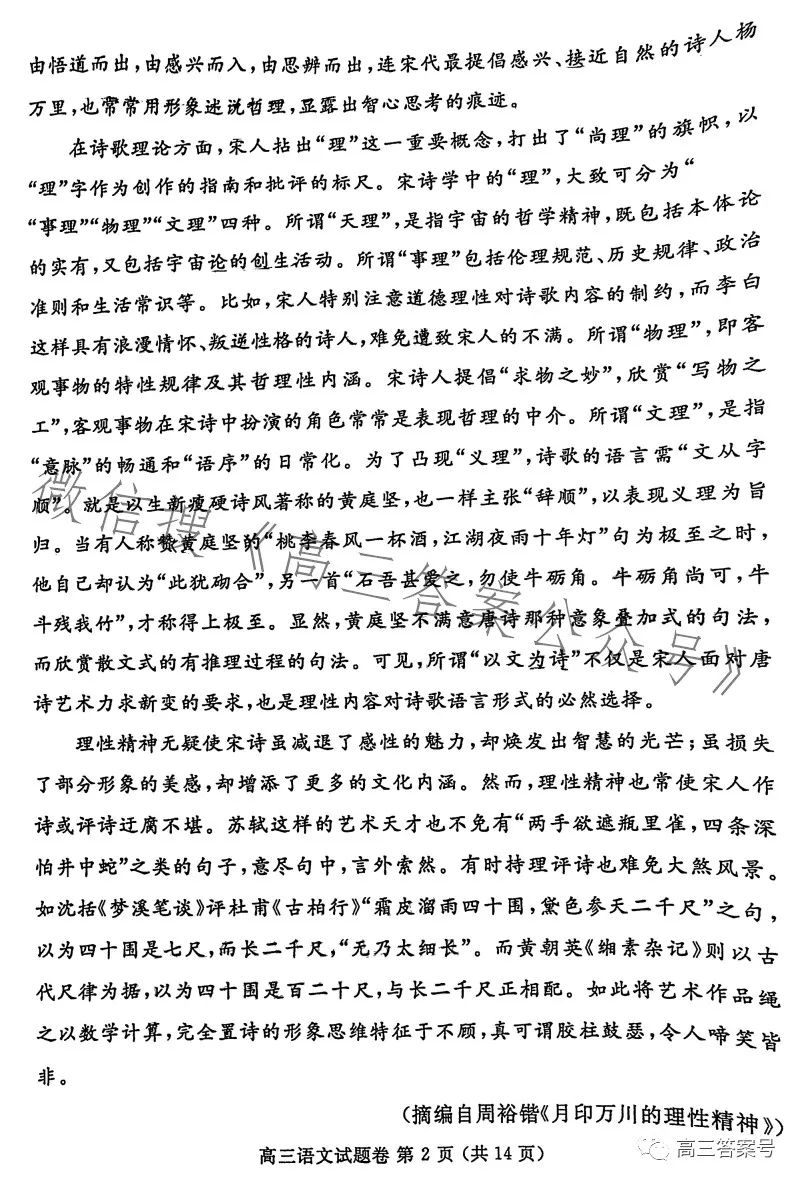 由悟道而出，由感兴而入，由思辨而出，连宋代最提倡感兴、接近自然的诗人杨
万里，也常常用形象迷说哲理，显露出智心思考的痕迹。
在诗歌理论方面，宋人拈出“理”这一重要概念，打出了“尚理”的旗帜，以
“理”字作为创作的指南和批评的标尺。宋诗学中的“理”，大致可分为“
“事理”“物理”“文理”四种。所谓“天理”，是指宇宙的哲学精神，既包括本体论
的实有，又包括宇宙论的创生活动。所谓“事理”包括伦理规范、历史规律、政治
准则和生活常识等。比如，宋人特别注意道德理性对诗歌内容的制约，而李白
这样具有浪漫情怀、叛逆性格的诗人，难免遭致宋人的不满。所谓“物理”，即客
观事物的特性规律及其哲理性内涵。宋诗人提倡“求物之妙”，欣赏“写物之
工”，客观事物在宋诗中扮演的角色常常是表现哲理的中介。所谓“文理”，是指
“意脉”的畅通和“语序”的日常化。为了凸现“义理”，诗歌的语言需“文从字
顺”。就是以生新瘦硬诗风著称的黄庭坚，也一样主张“辞顺”，以表现义理为旨
归。当有人称赞黄庭坚的“桃李春风一杯酒，江湖夜雨十年灯”句为极至之时，
他自己却认为“此犹砌合”，另一首“石吾甚爱之，勿使牛砺角。牛砺角尚可，牛
斗残我竹”，才称得上极至。显然，黄庭坚不满意唐诗那种意象叠加式的句法，
而欣赏散文式的有推理过程的句法。可见，所谓“以文为诗”不仅是宋人面对唐
诗艺术力求新变的要求，也是理性内容对诗歌语言形式的必然选择。
理性精神无疑使宋诗虽减退了感性的魅力，却焕发出智慧的光芒；虽损失
了部分形象的美感，却增添了更多的文化内涵。然而，理性精神也常使宋人作
诗或评诗迂腐不堪。苏轼这样的艺术天才也不免有“两手欲遮瓶里雀，四条深
怕井中蛇”之类的句子，意尽句中，言外索然。有时持理评诗也难免大煞风景。
如沈括《梦溪笔谈》评杜甫《古柏行》“霜皮溜雨四十围，黛色参天二千尺”之句，
以为四十围是七尺，而长二千尺，“无乃太细长”。而黄朝英《缃素杂记》则以古
代尺律为据，以为四十围是百二十尺，与长二千尺正相配。如此将艺术作品绳
之以数学计算，完全置诗的形象思维特征于不顾，真可谓胶柱鼓瑟，令人啼笑皆
非。
（摘编自周裕锴《月印万川的理性精神》）
高三语文试题卷 第 2 页（共 14 页）
高三答案号
微信搜《高三答案公众号》